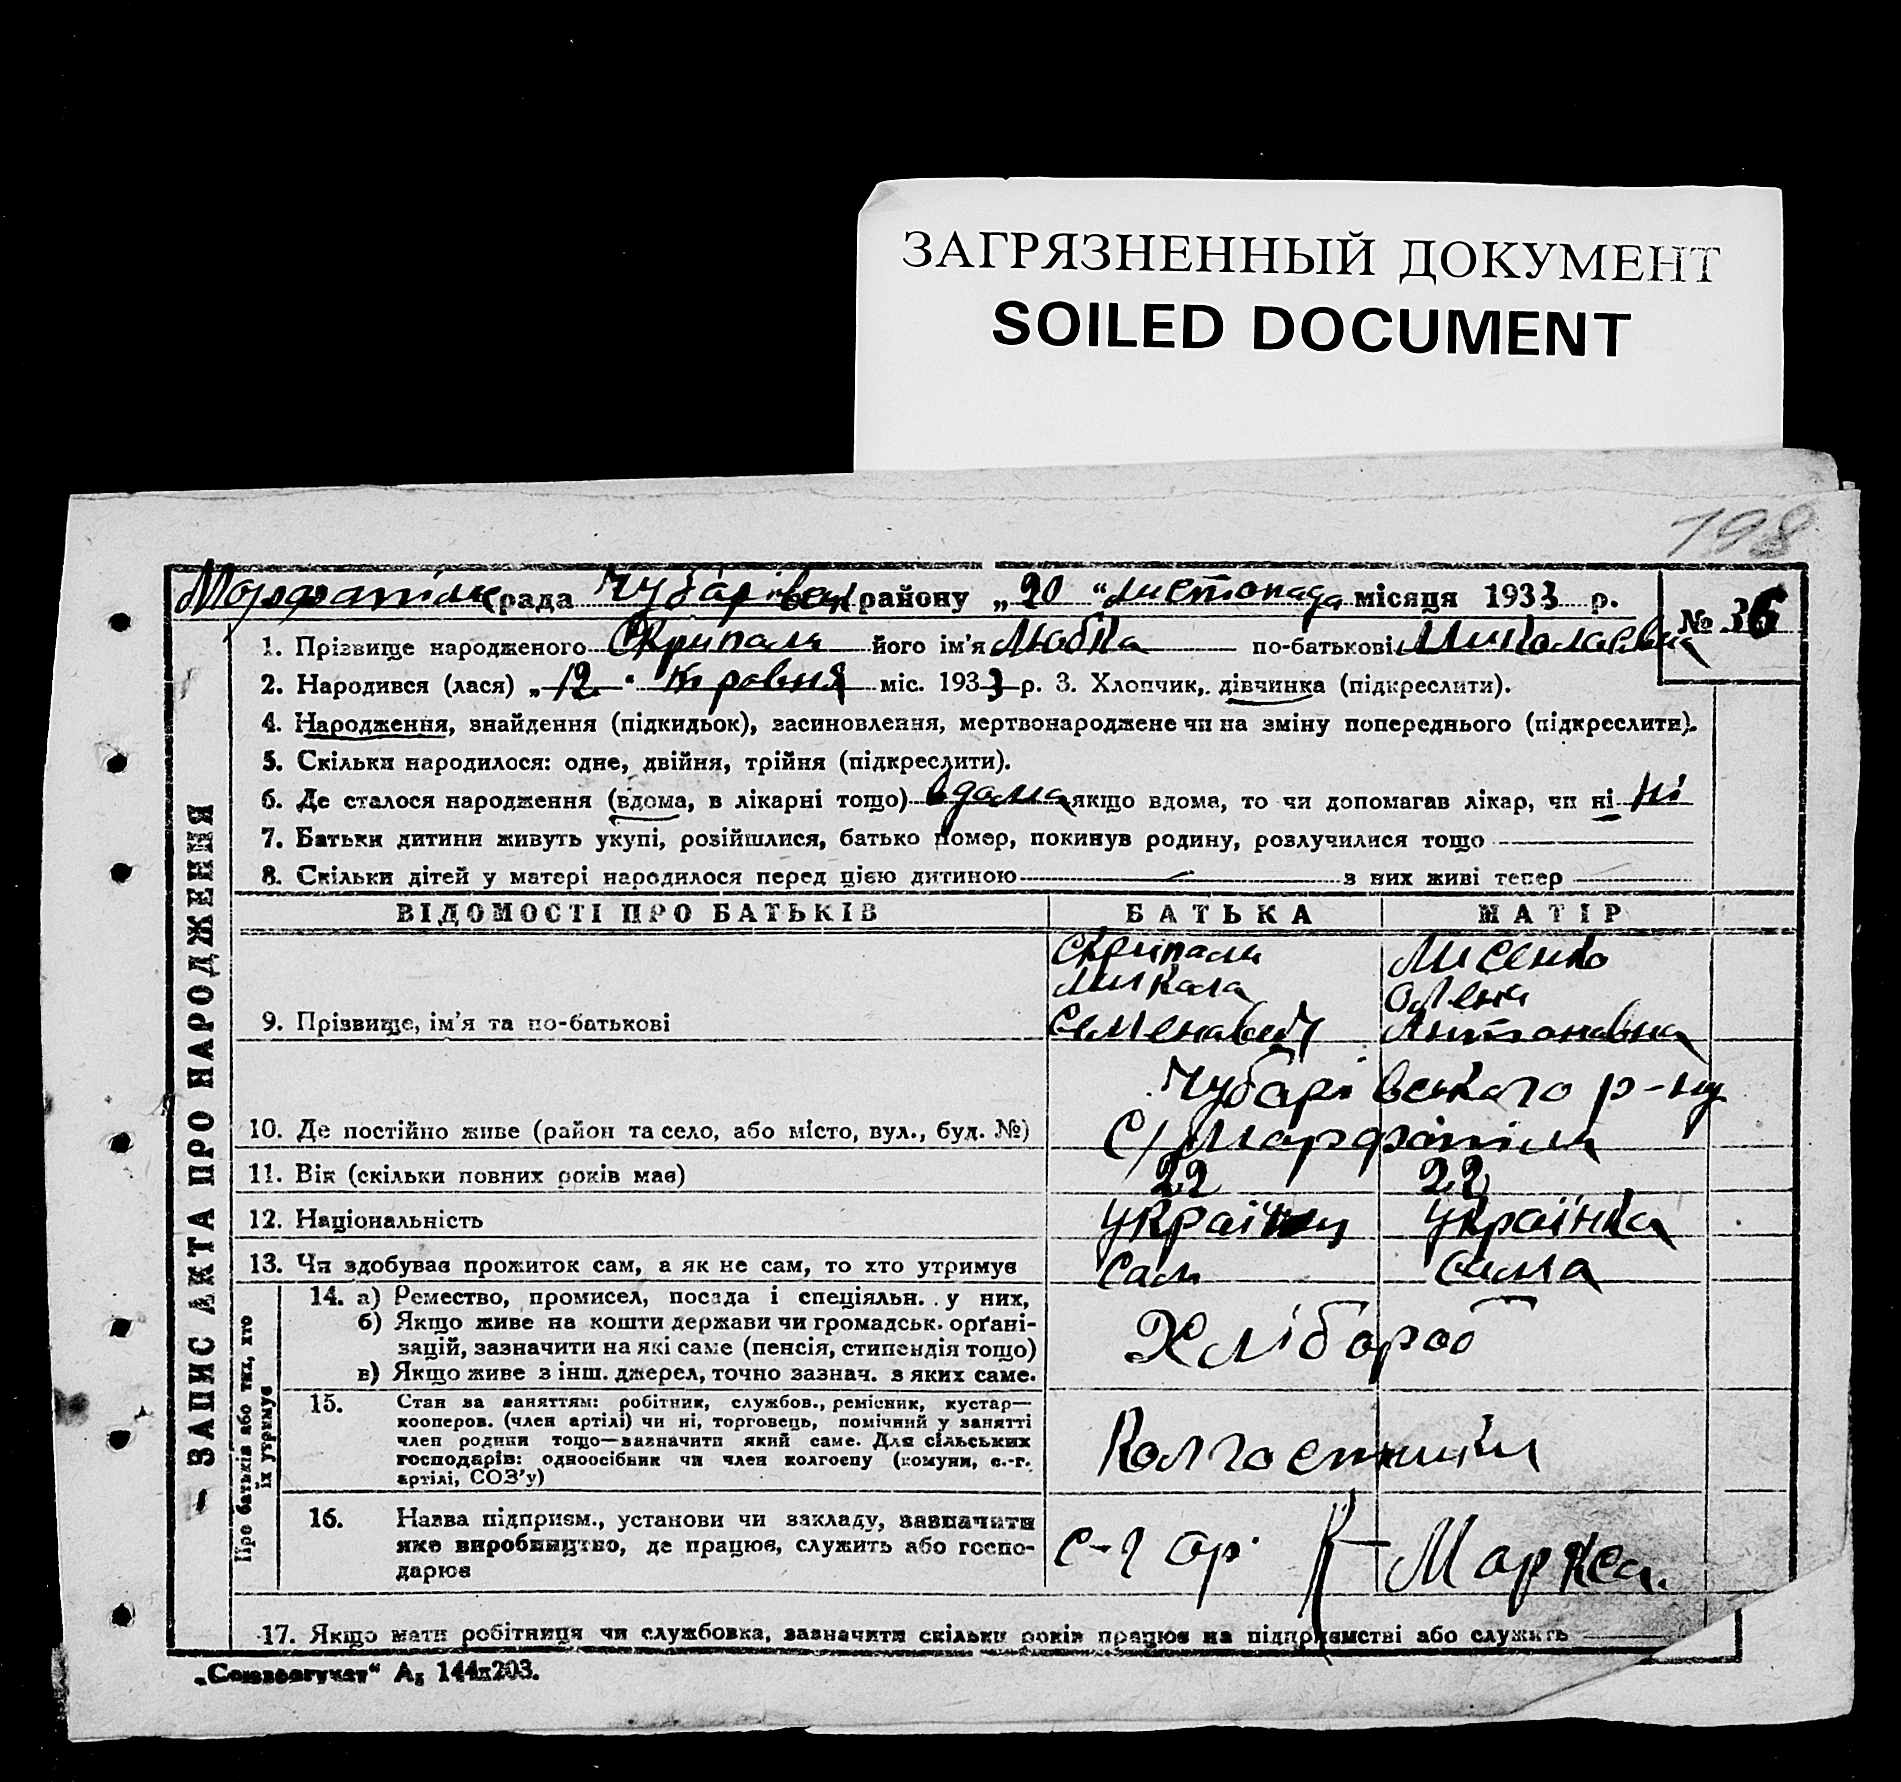 ЗАГРЯЗНЕННЫЙ ДОКУМЕНТ
SOILED DOCUMENT
198
Марфопіль рада Чубарівськ району „20 “ листопада місяця 1933 р.
№ 36
1. Прізвище народженого Скрипаль його ім'я Любка по-батькові Миколаєвна
2. Народився (лася) „12 " травня міс. 1933 р. 3. Хлопчик, дівчинка (підкреслити).
4. Народження, знайдення (підкидьок), засиновлення, мертвонароджене чи на зміну попереднього (підкреслити).
5. Скільки народилося: одне, двійня, трійня (підкреслити).
6. Де сталося народження (вдома, в лікарні тощо) вдома якщо вдома, то чи допомагав лікар, чи ні ні
7. Батьки дитини живуть укупі, розійшлися, батько помер, покинув родину, розлучилися тощо
8. Скільки дітей у матері народилося перед цією дитиною — з них живі тепер
ВІДОМОСТІ ПРО БАТЬКІВ БАТЬКА МАТІР
Скрипаль Лисенко
Микола Олена
9. Прізвище, ім'я та по-батькові Семенавич Антонавна
Чубарівського р-ну
10. Де постійно живе (район та село, або місто, вул., буд. №) С/Марфопіль
11. Вік (скільки повних років має) 22 22
12. Національність Українец Українка
13. Чи здобуває прожиток сам, а як не сам, то хто утримує Сам Сама
14. а) Ремество, промисел, посада і спеціяльн. у них,
б) Якщо живе на кошти держави чи громадськ. орґані-
зацій, зазначити на які саме (пенсія, стипендія тощо)
в) Якщо живе з інш. джерел, точно зазнач. з яких саме.
Хлібороб
15. Стан за заняттям: робітник, службов., ремісник, кустар—
кооперов. (член артілі) чи ні, торговець, помічний у занятті
член родини тощо—зазначити який саме. Для сільських
господарів: одноосібник чи член колгоспу (комуни, с.-г.
артілі, СОЗ'у)
Колгоспники
16. Назва підприєм., установи чи закладу, зазначити
яке виробництво, де працює, служить або госпо-
дарює
с-г ар. К Маркса.
17. Якщо мати робітниця чи службовка, зазначити скільки років працює на підприємстві або служить
А₅ 144х203.
— ЗАПИС АКТА ПРО НАРОДЖЕННЯ
Про батьків або тих, хто
їх утримує